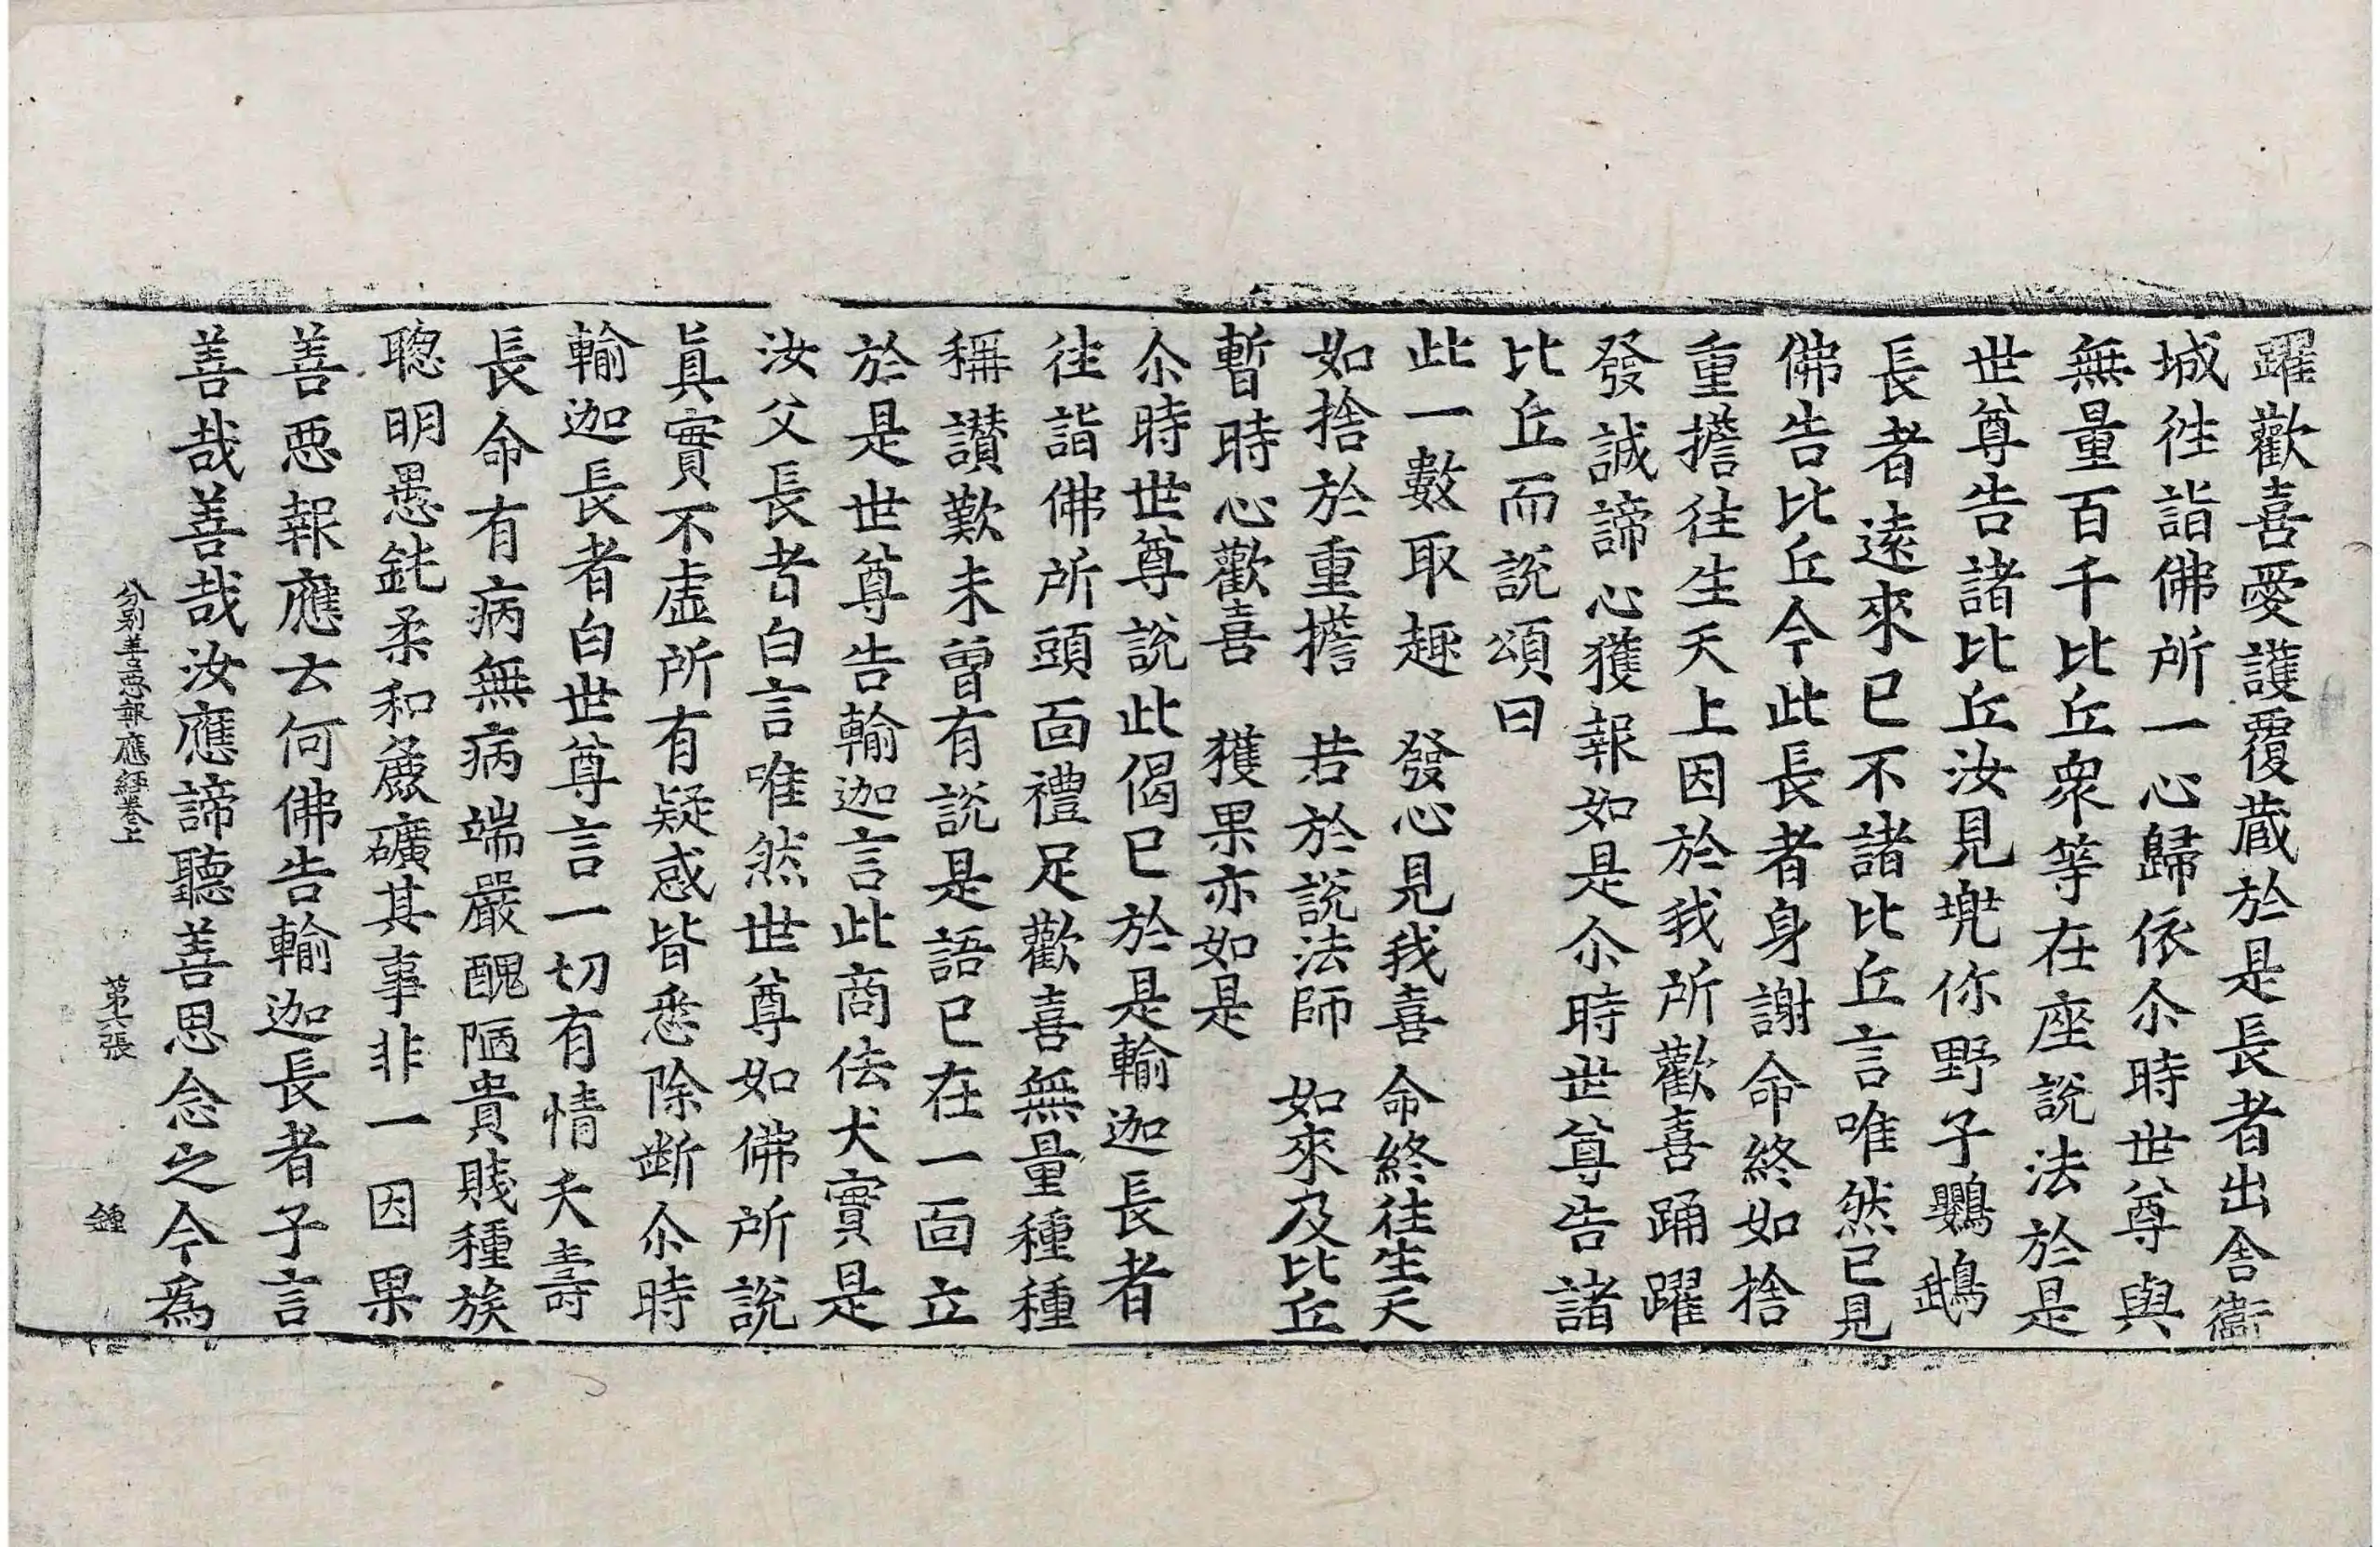 躍歡喜愛護覆蔵於是長者出舍衞
城徃詣佛所一心歸依尒時世尊與
無量百千比丘衆等在座說法於是
世尊告諸比丘汝見兠你野子鸚鵡
長者遠來已不諸比丘言唯然已見
佛告比丘今此長者身謝命終如捨
重擔徃生天上因於我所歡喜踊躍
發誠諦心獲報如是尒時世尊告諸
比丘而說頌曰
此一數取趣　發心見我喜　命終徃生天
如捨於重擔　若於說法師　如來及比丘
暫時心歡喜　獲果亦如是
尒時世尊說此偈已於是輸迦長者
徃詣佛所頭面禮足歡喜無量種種
稱讃歎未曾有說是語已在一面立
於是世尊告輸迦言此商佉犬實是
汝父長者白言唯然世尊如佛所說
眞實不虛所有疑惑皆悉除断尒時
輸迦長者白世尊言一切有情夭壽
長命有病無病端嚴醜陋貴賤種族
聦明愚鈍柔和麁礦其事非一因果
善惡報應云何佛告輸迦長者子言
善哉善哉汝應諦聽善思念之今爲
分别善惡報應經卷上　第六張　鍾